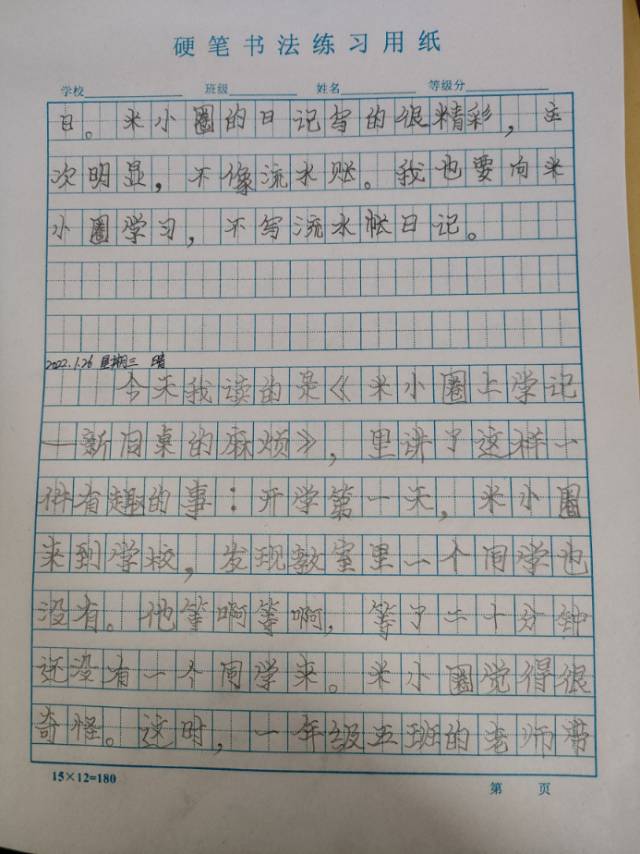 硬笔书法练习用纸
学校 班级 姓名 等级分
日。米小圈的日记写的很精彩，主
次明显，不像流水账。我也要向米
小圈学习，不写流水帐日记。
2022.1.26 星期三 晴
今天我读的是《米小圈上学记
—新同桌的麻烦》，里讲了这样一
件有趣的事：开学第一天，米小圈
来到学校，发现教室里一个同学也
没有。他等啊等啊，等了二十分钟
还没有一个同学来。米小圈觉得很
奇怪。这时，一年级五班的老师带
15×12=180
第 页